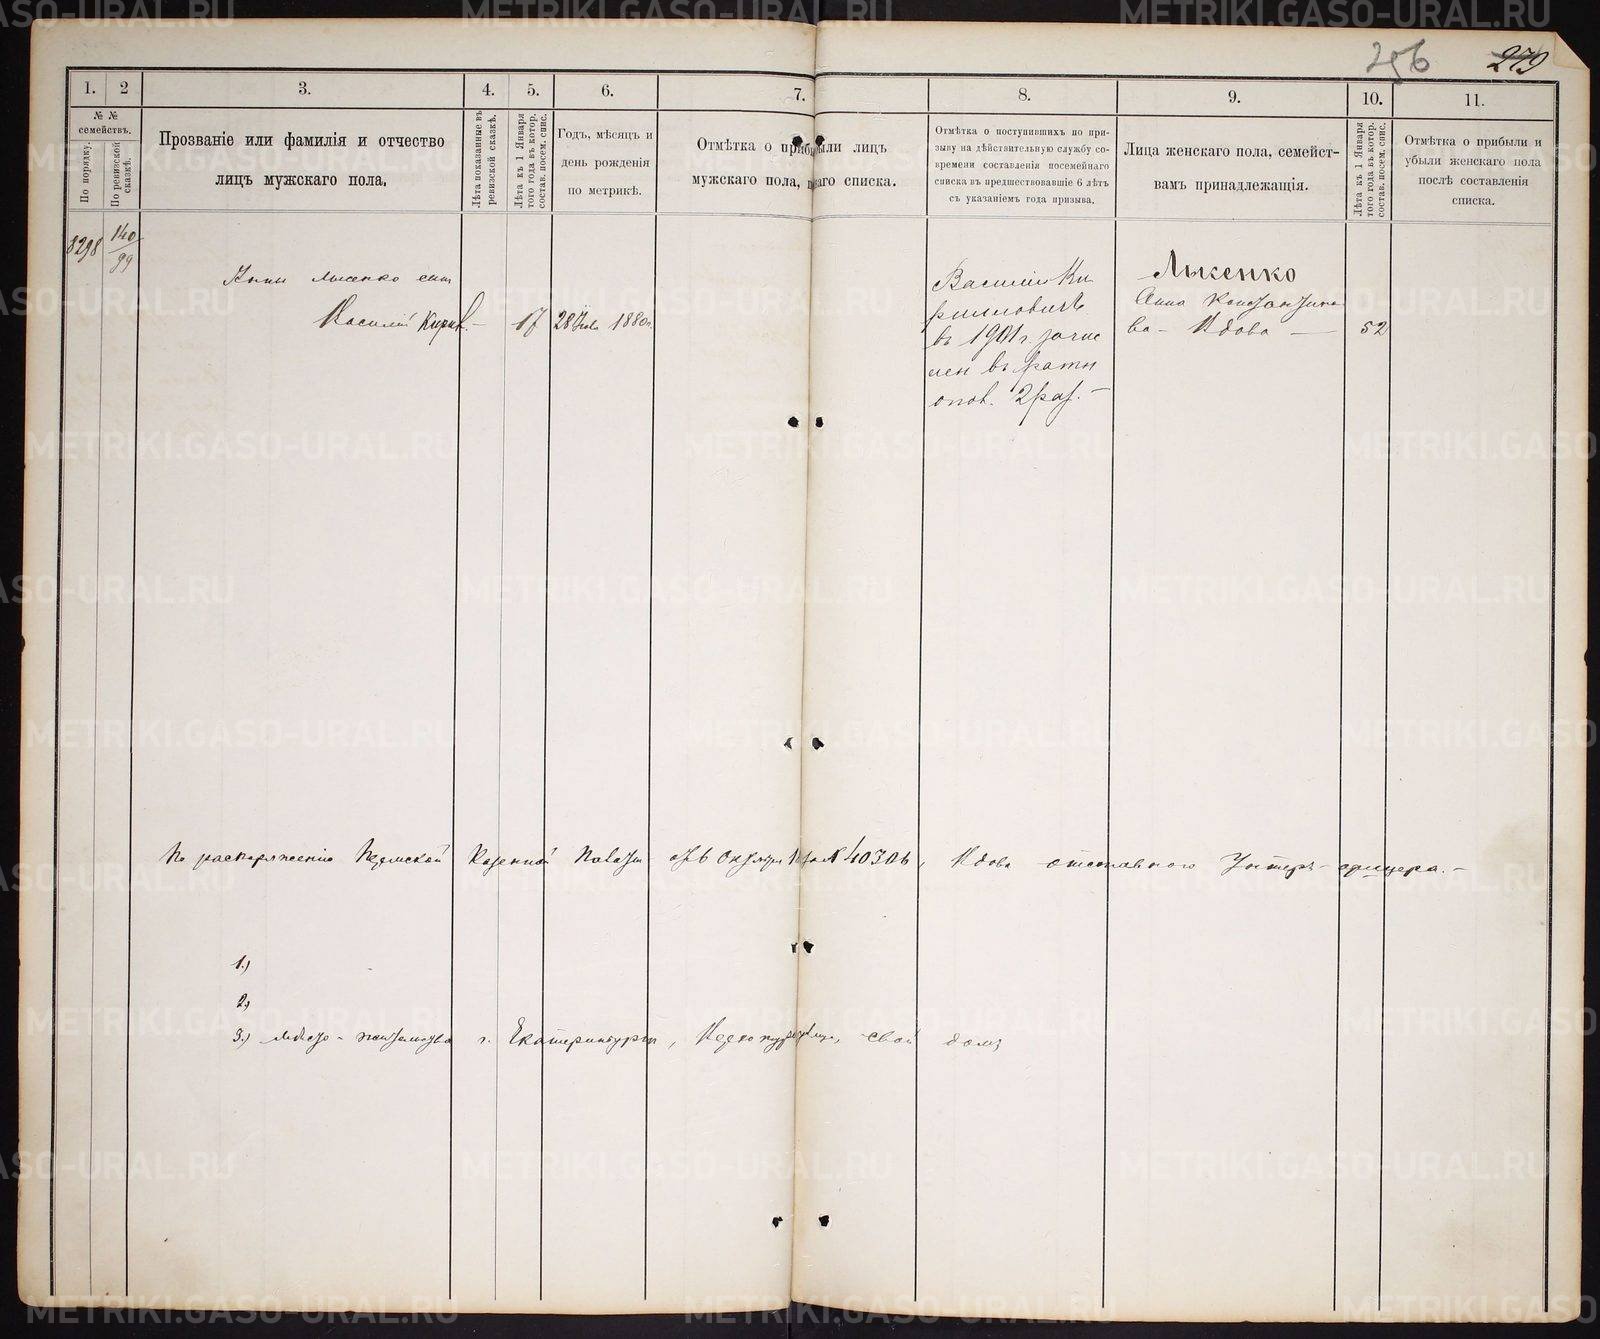 256 279
1. 2 3. 4. 5. 6. 7. 8. 9. 10. 11.
№ № семействъ.
По порядку.
По ревизской сказкѣ.
Прозваніе или фамилія и отчество
лицъ мужскаго пола.
Лѣта показанные въ
ревизской сказкѣ.
Лѣта къ 1 Января
того года въ котор.
состав. посем. спис.
Годъ, мѣсяцъ и
день рожденія
по метрикѣ.
Отмѣтка о прибыли лицъ
мужскаго пола, списка.
Отмѣтка о поступившихъ по при-
зыву на дѣйствительную службу со-
времени составленія посемейнаго
списка въ предшествовавшіе 6 лѣтъ
съ указаніемъ года призыва.
Лица женскаго пола, семейст-
вамъ принадлежащія.
Лѣта къ 1 Января
того года въ котор.
состав. посем. спис.
Отмѣтка о прибыли и
убыли женскаго пола
послѣ составленія
списка.
3298 140/99
Анны Лысенко сын
Василій Кирил. – 17 1880г.
Василій Ки
рилловичъ
въ 1901г зачис
лен въ ратн
опол. 2 раз. –
Лысенко
Анна Константино
ва – Вдова — 52
По распоряженію Пермской Казенной Палаты отъ Октября № 40306, Вдова отставного Унтеръ-офицера. –
1.)
2)
3.) Мѣсто-жительства г. Екатеринбургъ, свой домъ
METRIKI.GASO-URAL.RU